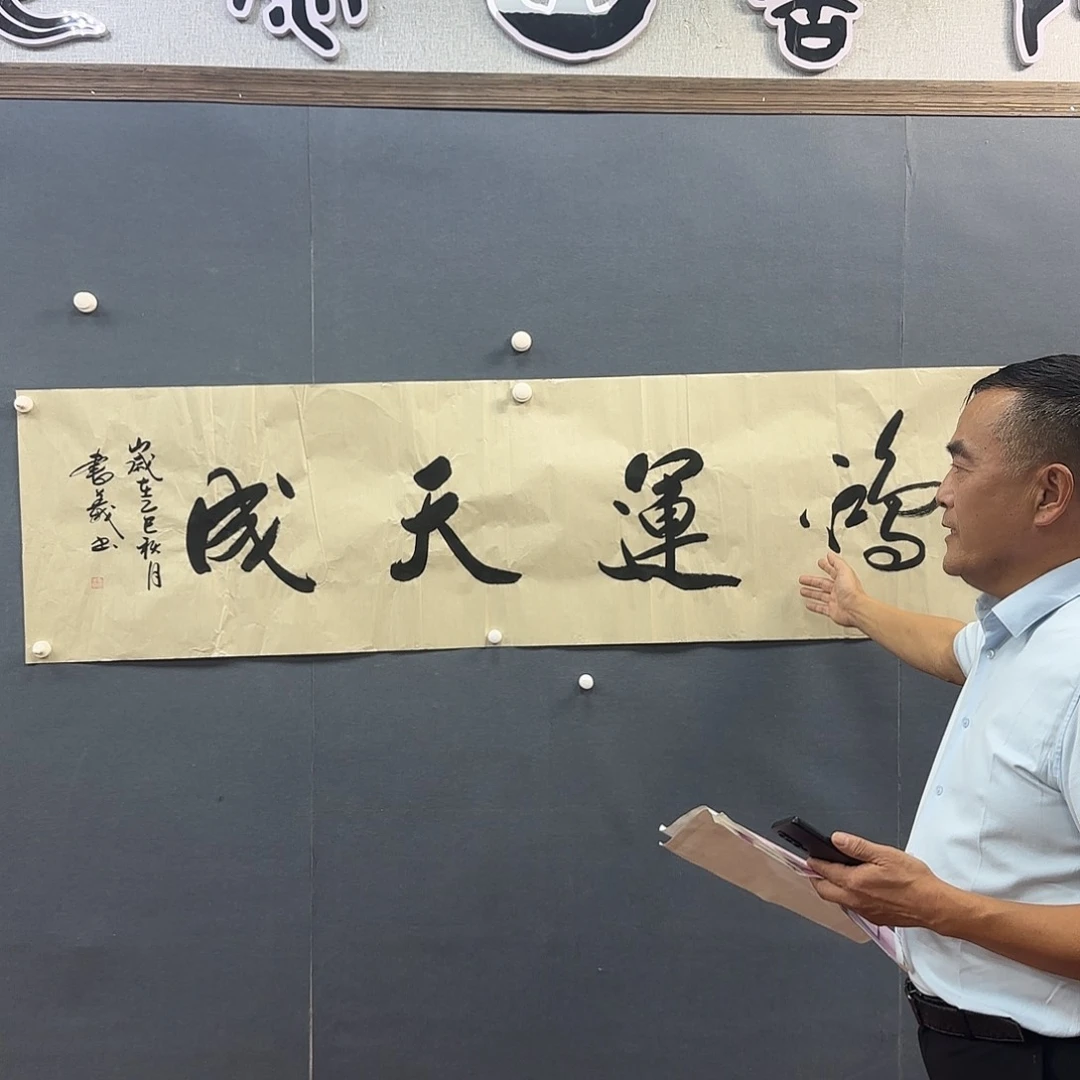 鴻運天成
歲在乙巳秋月
書義书